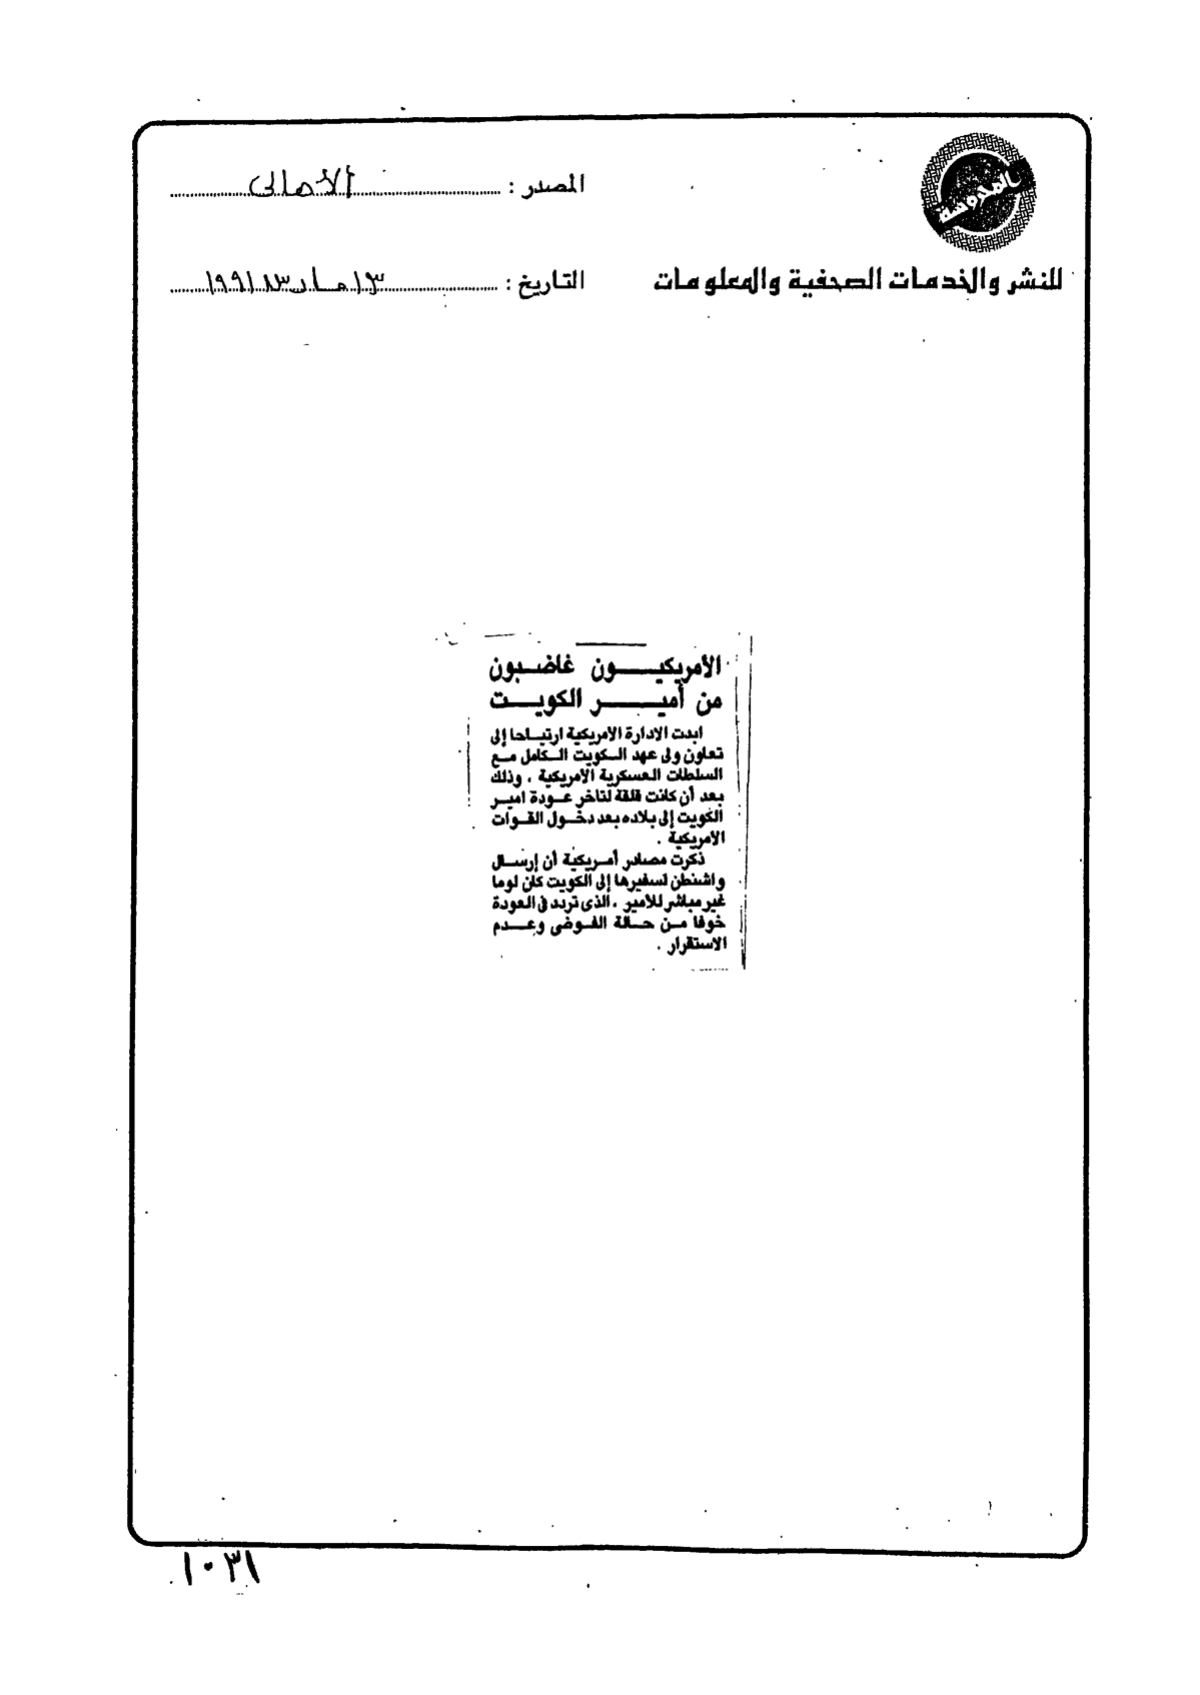 المصدر : الأهالى
للنشر والخدمات الصحفية والمعلومات
التاريخ : ١٣ مارس ١٩٩١
الأمريكيـــــون غاضبـــون
من أميـــــــر الكويـــت
ابدت الادارة الامريكية ارتياحا إلى
تعاون ولى عهد الكويت الكامل مع
السلطات العسكرية الامريكية ، وذلك
بعد أن كانت قلقة لتاخر عودة امير
الكويت إلى بلاده بعد دخول القوات
الامريكية .
ذكرت مصادر أمريكية أن إرسال
واشنطن لسفيرها إلى الكويت كان لوما
غير مباشر للأمير ، الذى تردد فى العودة
خوفا من حالة الفوضى وعدم
الاستقرار .
١٠٣١